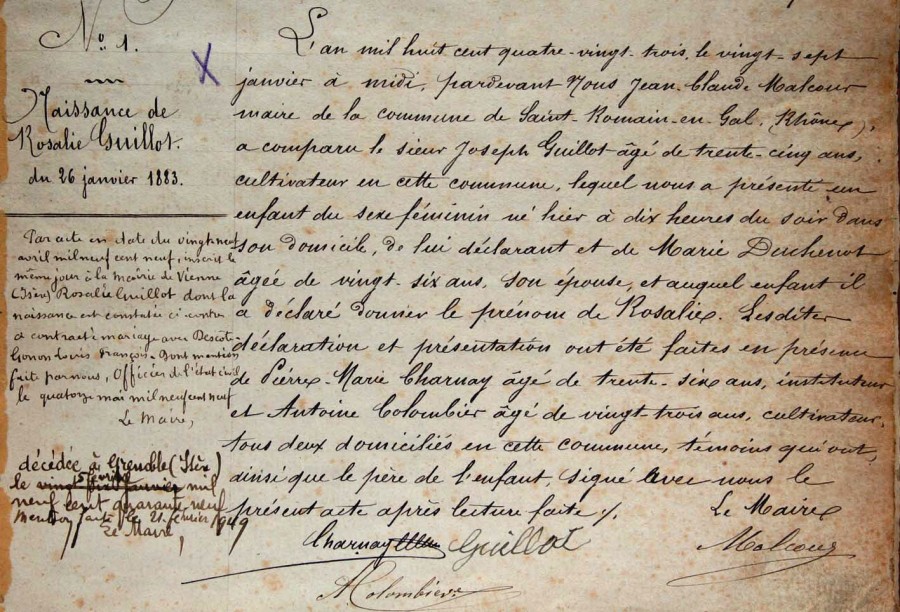 N° 1.
Naissance de
Rosalie Guillot.
du 26 janvier 1883.
Par acte en date du vingt neuf
avril mil neuf cent neuf, inscrit le
même jour à la mairie de Vienne
(Isère) Rosalie Guillot dont la
naissance est constatée ci-contre
a contracté mariage avec Descot-
Gonon Louis François. Dont mention
faite par nous, Officier de l'état civil
le quatorze mai mil neuf cent neuf
Le Maire,
décédée à Grenoble (Isère)
le février mil
neuf cent quarante neuf
Mention faite le 21 février 1949
Le Maire,
L'an mil huit cent quatre-vingt-trois, le vingt-sept
janvier à midi, pardevant Nous Jean-Claude Malcour
maire de la commune de Saint-Romain-en-Gal, (Rhône),
a comparu le sieur Joseph Guillot âgé de trente-cinq ans,
cultivateur en cette commune, lequel nous a présenté un
enfant du sexe féminin né hier à dix heures du soir dans
son domicile, de lui déclarant et de Marie Duchenot
âgée de vingt-six ans, son épouse, et auquel enfant il
a déclaré donner le prénom de Rosalie. Lesdites
déclaration et présentation ont été faites en présence
de Pierre-Marie Charnay âgé de trente-six ans, instituteur
et Antoine Colombier âgé de vingt-trois ans, cultivateur,
tous deux domiciliés en cette commune, témoins qui ont,
ainsi que le père de l'enfant, signé avec nous le
présent acte après lecture faite /.
Le Maire
Charnay Guillot Malcour
A Colombier